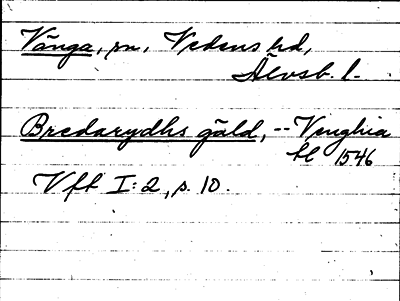 Vånga, sn, Vedens hd,
Älvsb. l.
Bredarydhs gäld, -- Venghia
bl 1546
Vft I:2, s. 10.